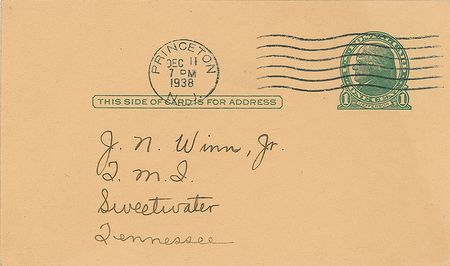 PRINCETON
DEC 11
7 PM
1938
N.J.
THIS SIDE OF CARD IS FOR ADDRESS
1 1
J. N. Winn, Jr.
T. M. I.
Sweetwater
Tennessee